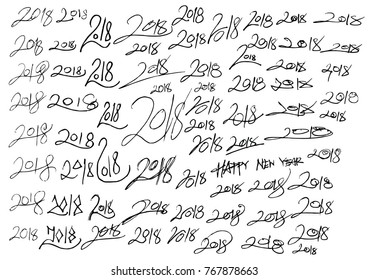 2018 2018 2018 2018 2018 2018 2018 2018 2018
2018 2018 2018 2018 2018 2018 2018 2018
2018 2018 2018 2018 2018 2018 2018
2018 2018 2018 2018 2018
2018 2018 2018 2018 2018 2018 2018 2018 2018
2018 2018 2018 2018 2018 2018 2018
2018 2018 2018 2018 2018 HAPPY NEW YEAR 2018
2018 2018 2018 2018
2018 2018 2018 2018 2018 2018 2018 2018 2018
2018 2018 2018 2018 2018 2018 2018 2018
shutterstock.com · 767878663